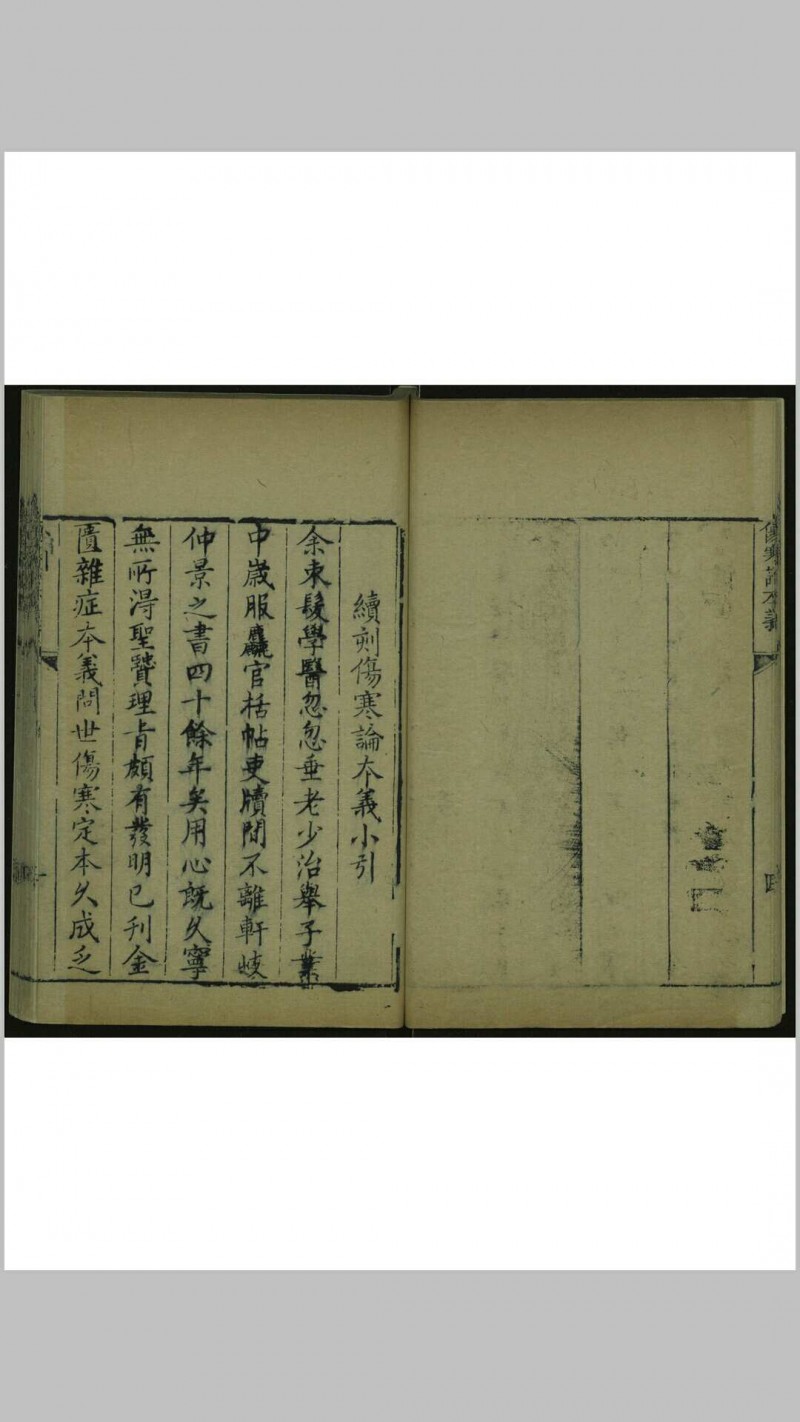 傷寒論本義
四
續刻傷寒論本義小引
余束髮學醫忽忽垂老少治舉子業
中歲服麤官栝帖吏牘間不離軒岐
仲景之書四十餘年矣用心既久寧
無所淂聖贒理旨頗有發明已刊金
匱雜症本義問世傷寒定本久成乏